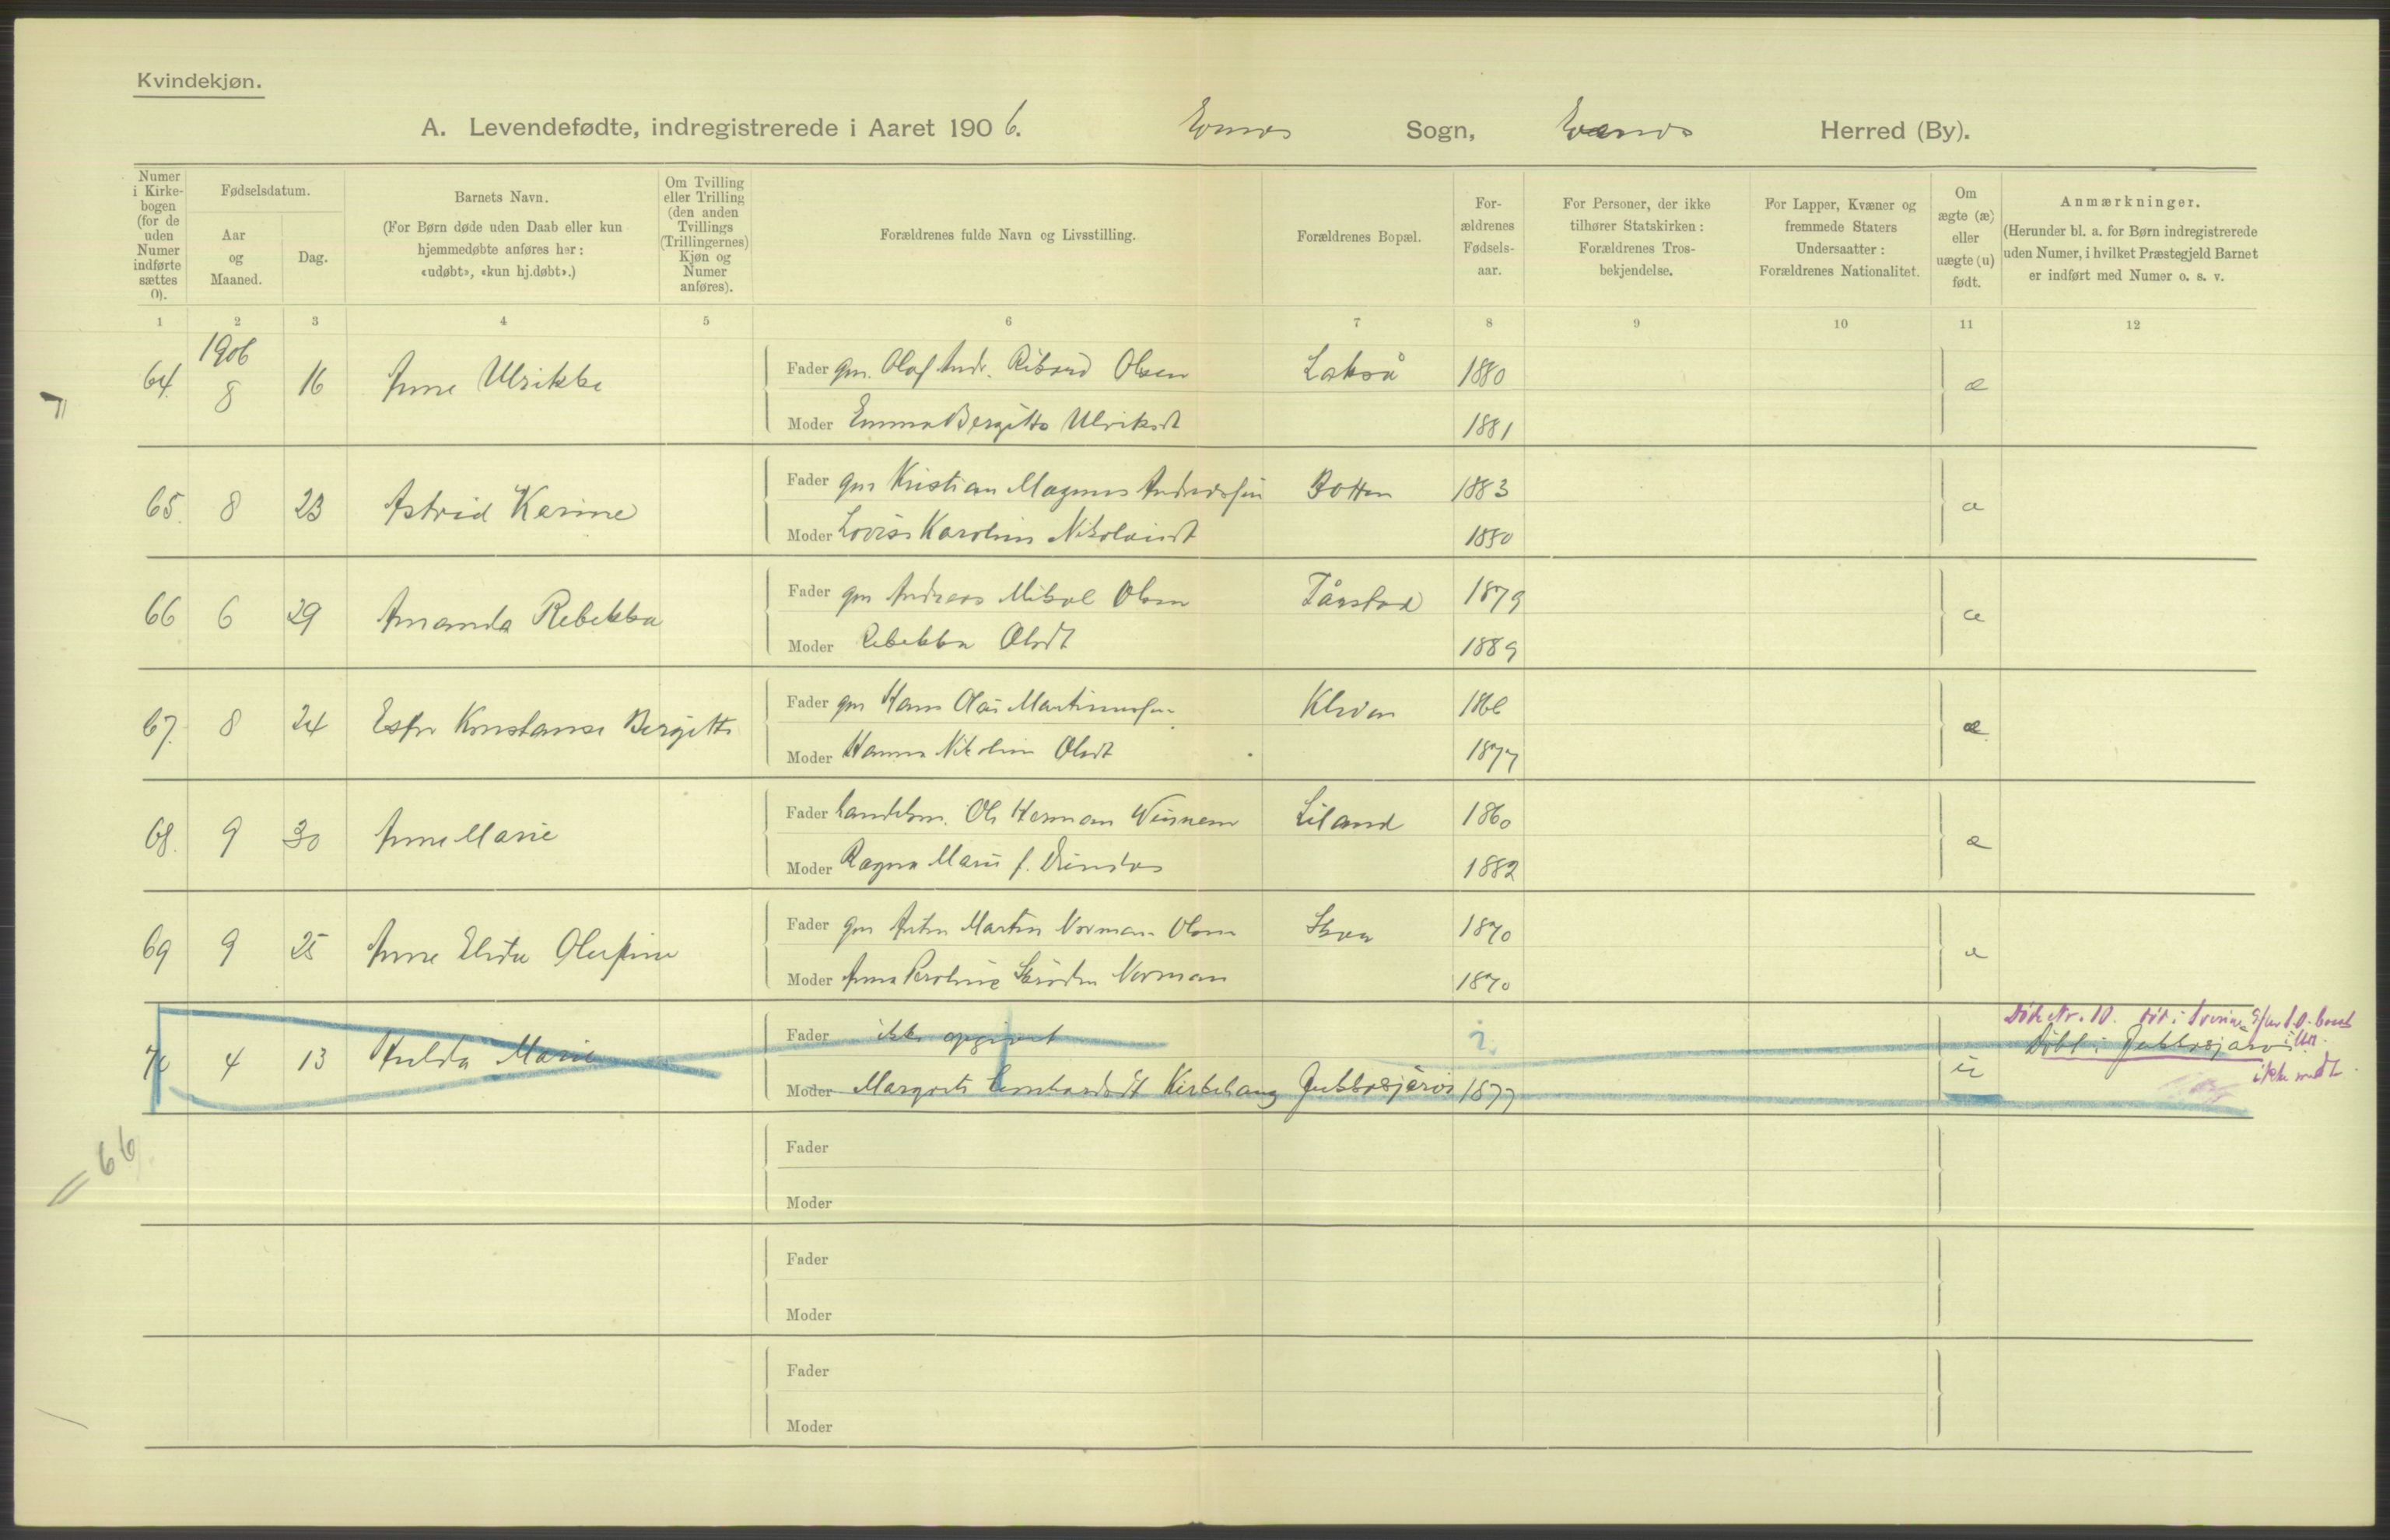 Kvindekjøn.
A. Levendefødte, indregistrerede i Aaret 1906. Evenes Sogn, Evenes Herred (By).
Numer i Kirkebogen (for de uden Numer indførte sættes 0).
Fødselsdatum.
Aar og Maaned.
Dag.
Barnets Navn.
(For Børn døde uden Daab eller kun hjemmedøbte anføres her: «udøbt», «kun hj.døbt».)
Om Tvilling eller Trilling (den anden Tvillings (Trillingernes) Kjøn og Numer anføres).
Forældrenes fulde Navn og Livsstilling.
Forældrenes Bopæl.
Forældrenes Fødselsaar.
For Personer, der ikke tilhører Statskirken: Forældrenes Trosbekjendelse.
For Lapper, Kvæner og fremmede Staters Undersaatter: Forældrenes Nationalitet.
Om ægte (æ) eller uægte (u) født.
Anmærkninger.
(Herunder bl. a. for Børn indregistrerede uden Numer, i hvilket Præstegjeld Barnet er indført med Numer o. s. v.
1 2 3 4 5 6 7 8 9 10 11 12
1906
64. 8 16 Anne Ulrikke Fader gm. Olaf Andr. Rikard Olsen Lakså 1880 æ
Moder Emma Bergitte Ulriksdt 1881
65. 8 23 Astrid Karine Fader gm Kristian Magnus Andreassen Botten 1883 æ
Moder Lovise Karoline Nikolaisdt 1880
66 6 29 Amanda Rebekka Fader gm Andreas Mikal Olsen Tårstad 1879 æ
Moder Rebekka Olsdt 1889
67. 8 24 Ester Konstanse Bergitte Fader gm Hans Olai Martinussen Kleiven 1866 æ
Moder Hanna Nikoline Olsdt 1877
68. 9 30 Anne Marie Fader handelsm. Ole Herman Liland 1860 æ
Moder Ragna Marie f. 1882
69 9 25 Anne Elida Olufine Fader gm Anton Martin Norman Olsen 1870 æ
Moder Anna Norman 1870
70 4 13 Hulda Marie Fader ikke opgivet u
Moder Margrete Kirkehaug Jukkasjärvi 1877
Døbt i Jukkasjärvi
Døde Nr. 10.
ikke medt.
= 66
Fader
Moder
Fader
Moder
Fader
Moder